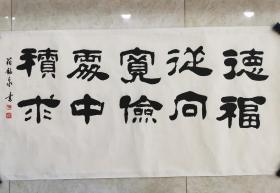 德福
從向
寬儉
處中
積求
書